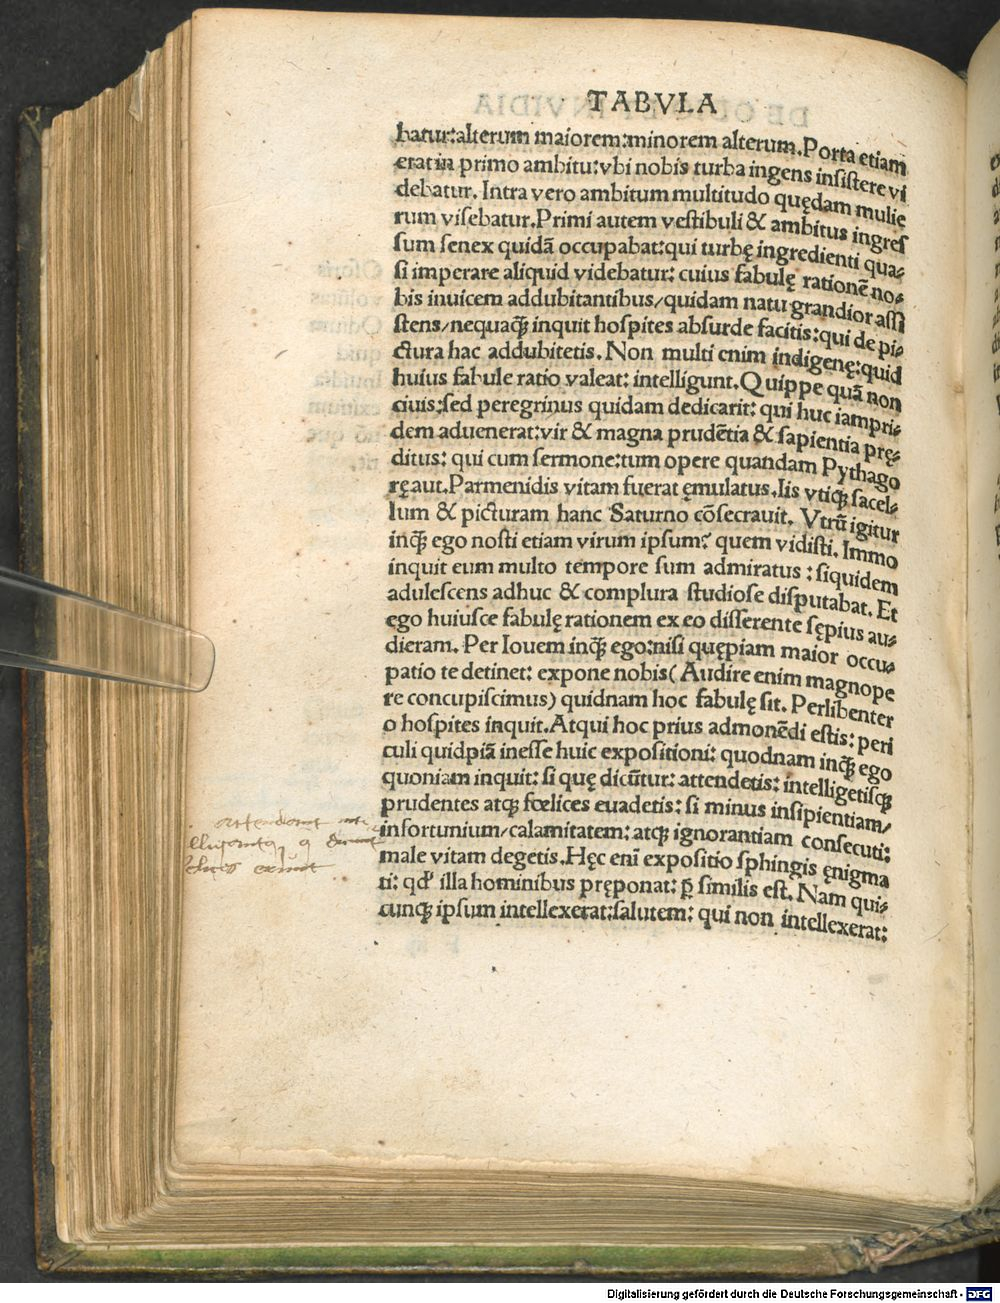 TABVLA
batur:alterum maiorem:minorem alterum.Porta etiam
erat in primo ambitu:vbi nobis turba ingens inſiſtere vi
debatur. Intra vero ambitum multitudo quędam mulie
rum viſebatur.Primi autem veſtibuli & ambitus ingreſ
ſum ſenex quidā occupabat:qui turbę ingredienti qua⸗
ſi imperare aliquid videbatur: cuius fabulę rationē no⸗
bis inuicem addubitantibus/quidam natu grandior aſſi
ſtens/nequaq̃ inquit hoſpites abſurde facitis:qui de pi⸗
ctura hac addubitetis. Non multi enim indigenę:quid
huius fabule ratio valeat: intelligunt.Quippe quā non
ciuis:ſed peregrinus quidam dedicarit: qui huc iampri⸗
dem aduenerat:vir & magna prudētia & ſapientia prę⸗
ditus: qui cum ſermone:tum opere quandam Pythago
rę aut.Parmenidis vitam fuerat ęmulatus.Iis vtiq; ſacel⸗
lum & picturam hanc Saturno cōſecrauit. Vtrū igitur
inq̃ ego noſti etiam virum ipſum? quem vidiſti. Immo
inquit eum multo tempore ſum admiratus : ſiquidem
aduleſcens adhuc & complura ſtudioſe diſputabat. Et
ego huiuſce fabulę rationem ex eo diſſerente ſępius au⸗
dieram. Per Iouem inq̃ ego:niſi quępiam maior occu⸗
patio te detinet: expone nobis( Audire enim magnope
re concupiſcimus) quidnam hoc fabulę ſit. Perlibenter
o hoſpites inquit.Atqui hoc prius admonēdi eſtis: peri
culi quidpiā ineſſe huic expoſitioni: quodnam inq̃ ego
quoniam inquit: ſi quę dicūtur: attendetis: intelligetiſq;
prudentes atq; fœlices euadetis: ſi minus inſipientiam/
infortunium/calamitatem: atq; ignorantiam conſecuti:
male vitam degetis.Hęc eni expoſitio ſphingis ęnigma
ti: qd' illa hominibus pręponat: p̱ ſimilis eſt. Nam qui⸗
cunq; ipſum intellexerat:ſalutem: qui non intellexerat:
Digitalisierung gefördert durch die Deutsche Forschungsgemeinschaft - DFG